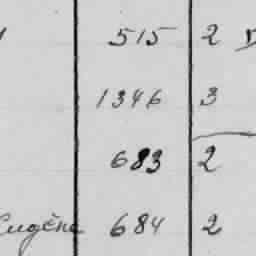 515 2
1346 3
683 2
Eugène 684 2